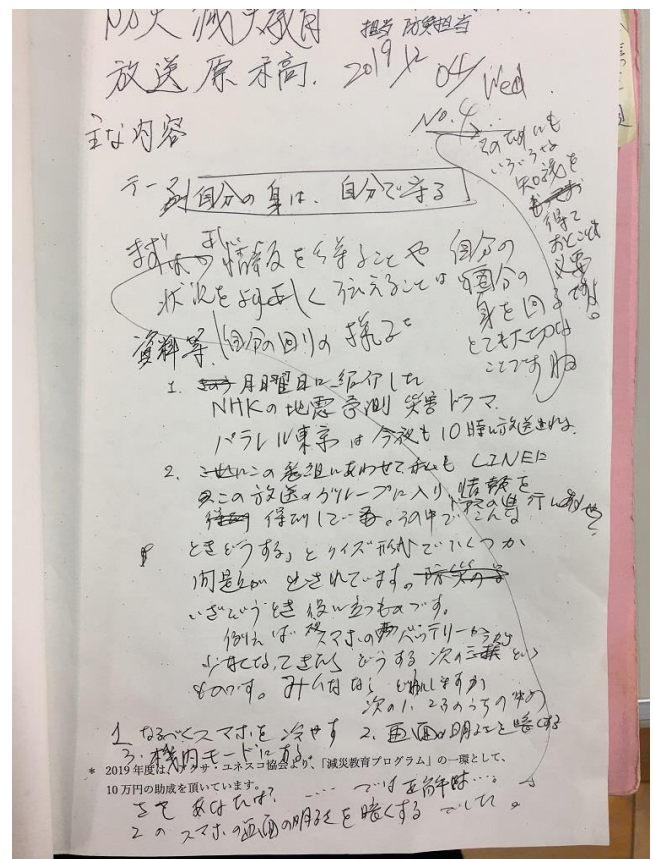 防災減災教育 担当 防災担当
放送原稿. 2019 12/04/Wed
No.4
主な内容
そのためにも
いろいろな
知識を
得て
おくことも
必要
ですよ。
テーマ 自分の身は、自分で守る
まず 情報を得ることや 自分の
状況を よく伝えることは 自分の
身を回る
とても大切な
ことですね
資料等. 自分の回りの様子を
1. 月曜日に紹介した
NHKの地震予測 災害ドラマ.
パラレル東京は今夜も10時に放送される.
2. この番組にあわせて私も LINEに
この放送のグループに入り 情報を
その中で こんな
ときどうする」とクイズ形式でいくつか
問題が 出されています。
いざというとき役に立つものです。
例えば スマホの バッテリーが
少なくなってきたら どうする 次の という
ものです。みんなならどれにしますか
次の1. 2 3のうちの
1 なるべくスマホを冷やす 2. 画面の明るさを暗くする
3. 機内モードにする。
* 2019 年度は、アクサ・ユネスコ協会より、「減災教育プログラム」の一環として、
10 万円の助成を頂いています。
さて あなたは? …… では 正解は…。
2の スマホの画面の明るさを暗くする でした。